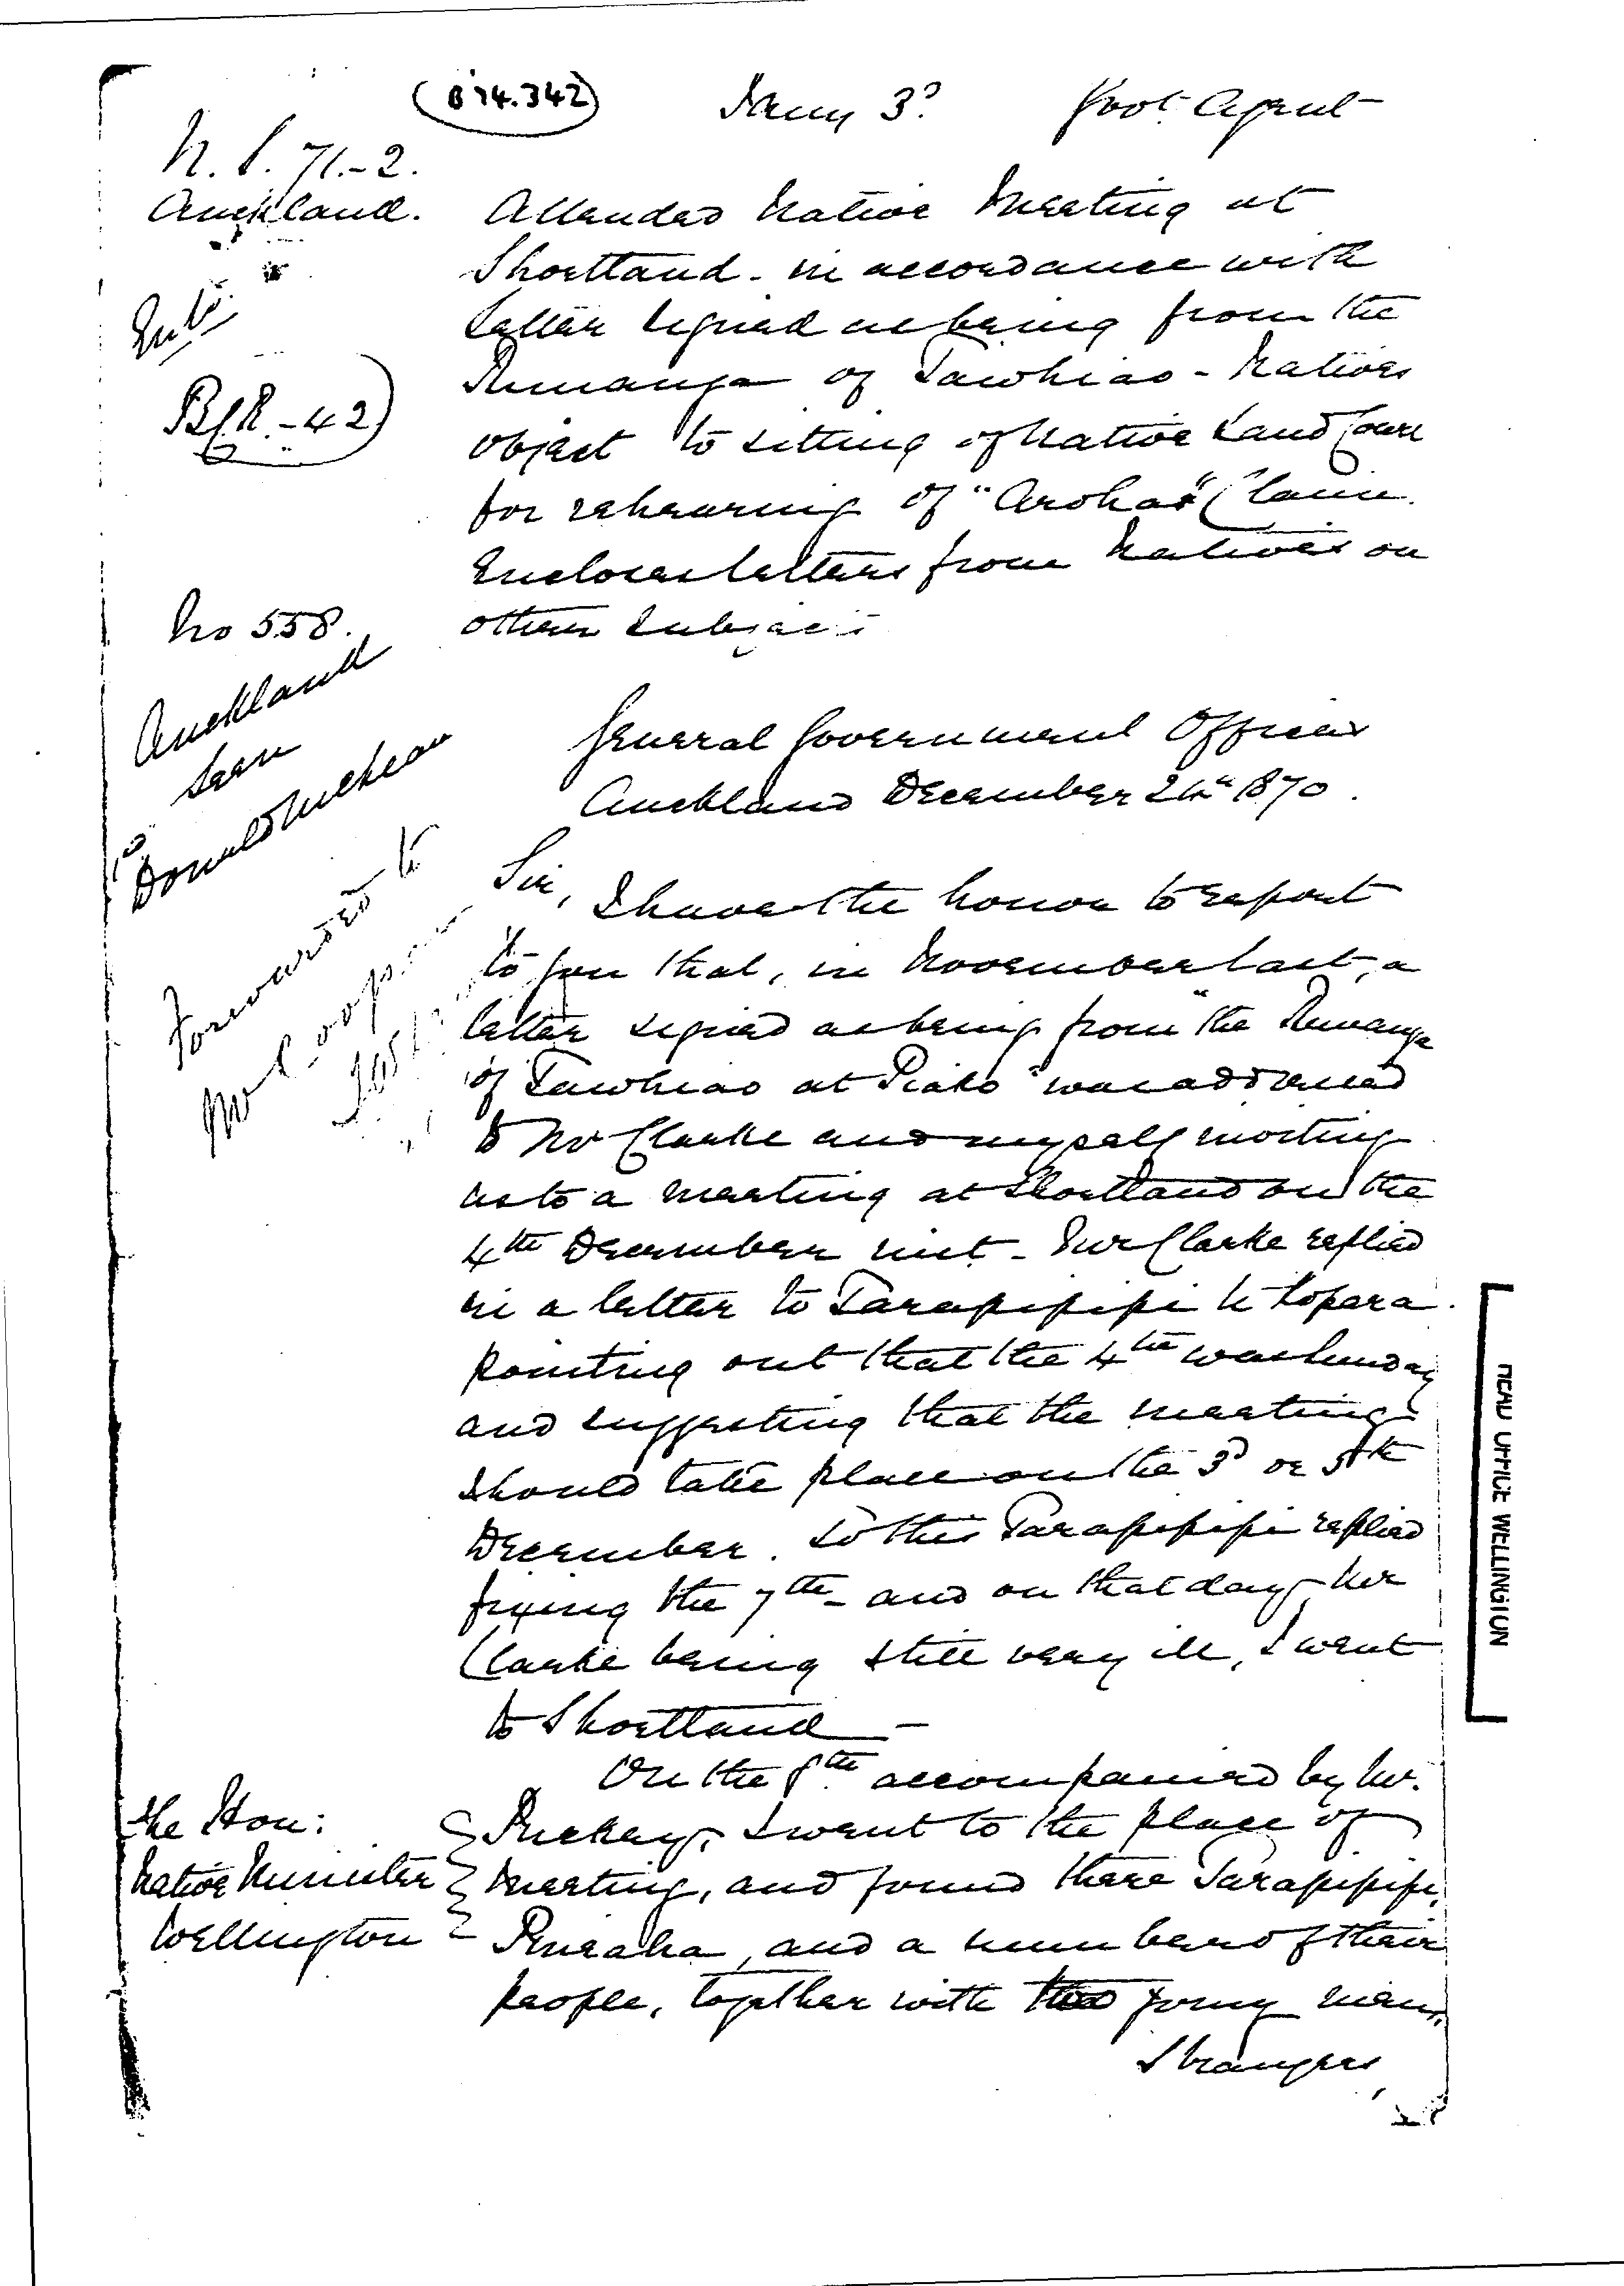 (B 74.342)
Jany 3d
Govt. Agent
N. S. 71.-2.
Auckland.
Attended Native Meeting at
Shortland - in accordance with
Letter signed as being from the
Runanga of Tawhiao - Natives
object to sitting of Native Land Court
for rehearing of "Aroha" Claim.
Encloses letters from Natives on
other subjects
No 558.
Auckland
Seen
Donald McLean
Forwarded to
Mr
General Government Offices
Auckland December 24th 1870.
Sir,
I have the honor to report
to you that, in November last, a
letter signed as being from "the Runanga
of Tawhiao at Piako" was addressed
to Mr Clarke and myself inviting
us to a meeting at Shortland on the
4th December inst - Mr Clarke replied
in a letter to Tarapipipi te Kopara
pointing out that the 4th was Sunday
and suggesting that the meeting
should take place on the 3d or 5th
December. To this Tarapipipi replied
fixing the 7th - and on that day, Mr
Clarke being still very ill, I went
to Shortland -
On the 8th accompanied by Mr.
Puckey, I went to the place of
meeting, and found there Tarapipipi,
and a number of their
people, together with two young men,
strangers
The Hon:
Native Minister
Wellington
HEAD OFFICE WELLINGTON